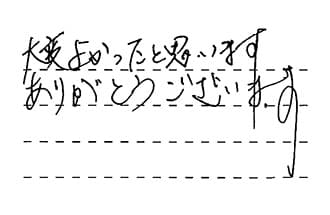 大変よかったと思います
ありがとうございます